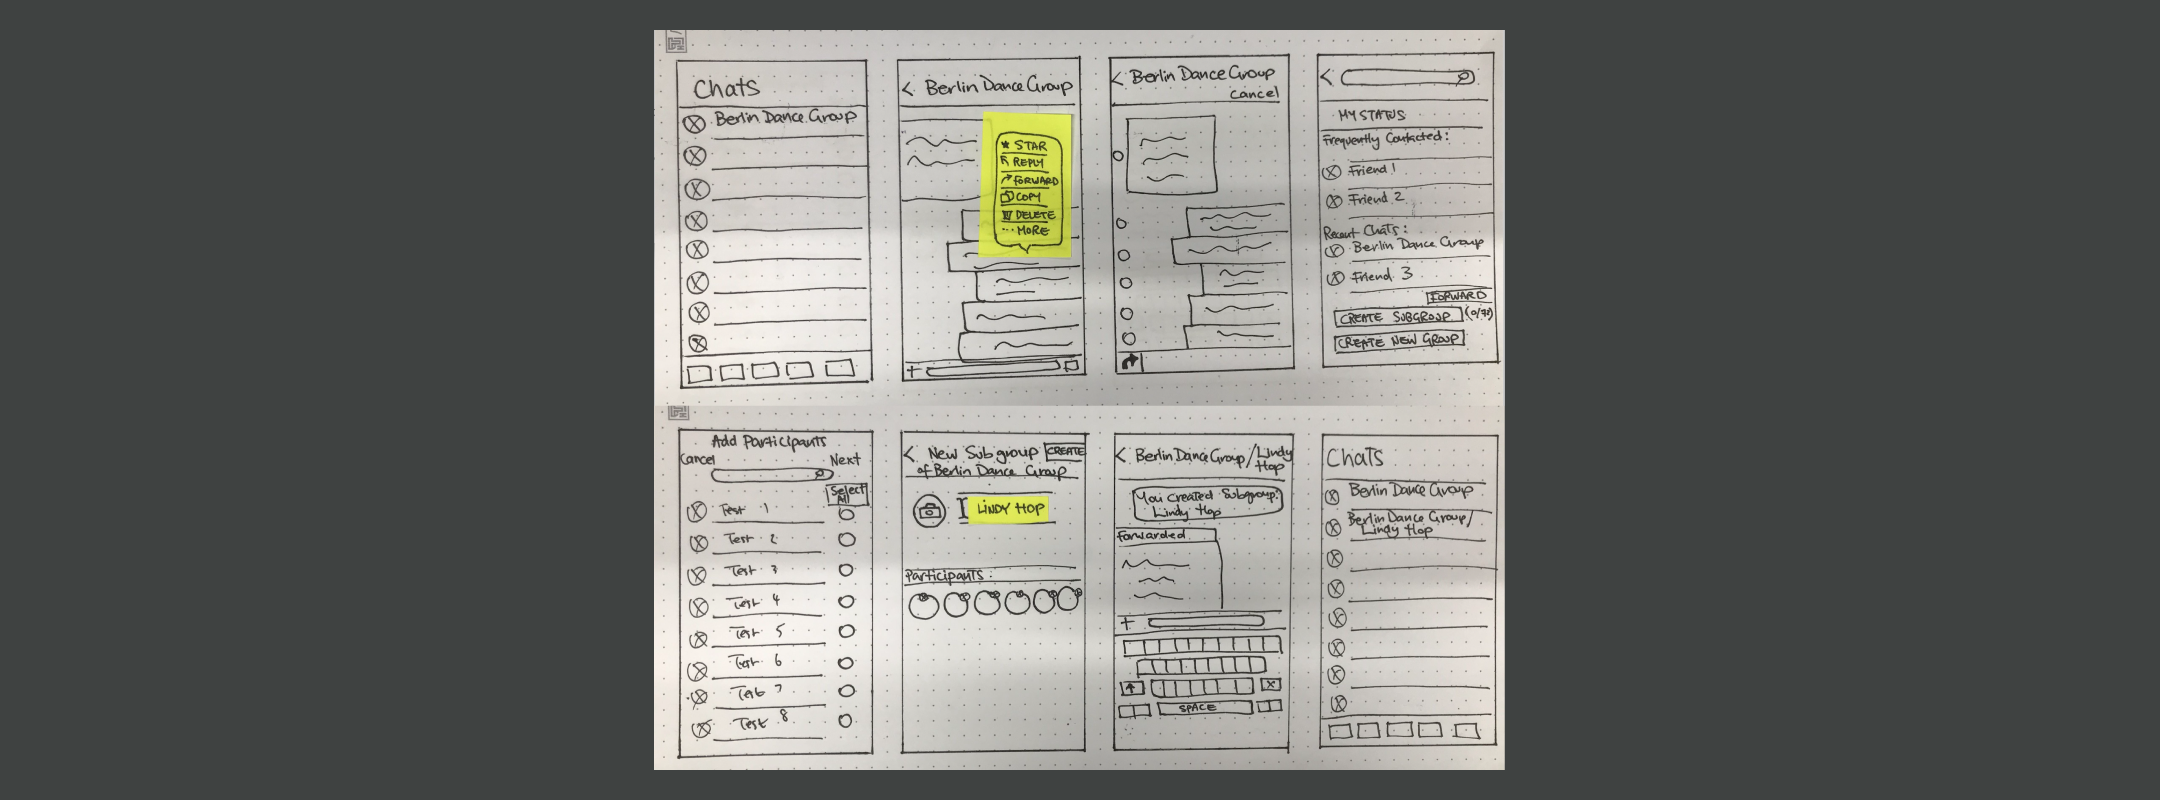 Chats
Berlin Dance Group
< Berlin Dance Group
★ STAR
REPLY
FORWARD
COPY
DELETE
... MORE
+
< Berlin Dance Group
Cancel
<
MY STATUS
Frequently Contacted:
Friend 1
Friend 2
Recent Chats:
Berlin Dance Group
Friend 3
FORWARD
CREATE SUBGROUP
CREATE NEW GROUP
Add Participants
Cancel
Next
Select
All
Test 1
Test 2
Test 3
Test 4
Test 5
Test 6
Test 7
Test 8
< New Subgroup CREATE
of Berlin Dance Group
LINDY HOP
Participants:
< Berlin Dance Group/Lindy
Hop
You created Subgroup:
Lindy Hop
Forwarded
+
SPACE
Chats
Berlin Dance Group
Berlin Dance Group/
Lindy Hop